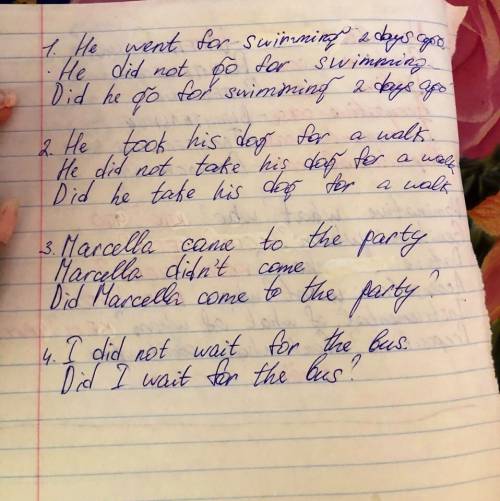 1. He went for swimming 2 days ago.
. He did not go for swimming
Did he go for swimming 2 days ago
2. He took his dog for a walk.
He did not take his dog for a walk
Did he take his dog for a walk
3. Marcella came to the party
Marcella didn't come
Did Marcella come to the party?
4. I did not wait for the bus.
Did I wait for the bus?